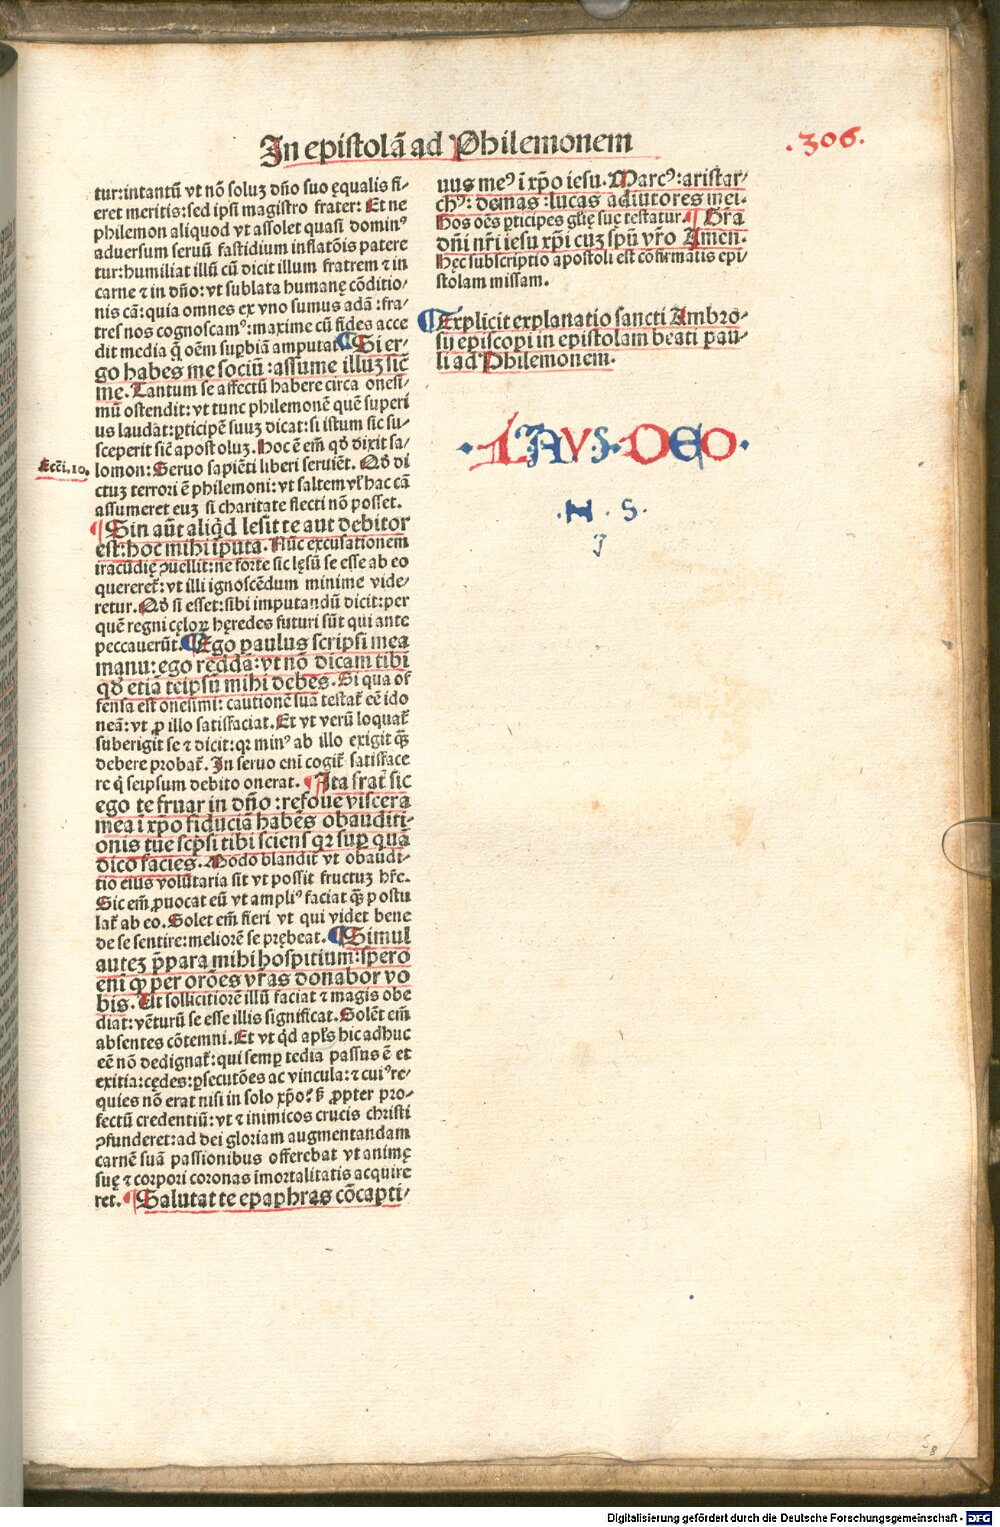 In epistolā ad Philemonem
.306.
tur:intantū vt nō soluʒ dño suo ęqualis fi-
eret meritis:sed ipsi magistro frater: Et ne
philemon aliquod vt assolet quasi dominꝰ
aduersum seruū fastidium inflatōis patere
tur:humiliat illū cū dicit illum fratrem ⁊ in
carne ⁊ in dño:vt sublata humanę cōditio-
nis cā:quia omnes ex vno sumus adā :fra-
tres nos cognoscamꝰ:maxime cū fides acce
dit media q̄ oēm suꝑbiā amputat. Si er-
go habes me sociū :assume illuʒ sic̄
me. Tantum se affectū habere circa onesi-
mū ostendit:vt tunc philemonē quē superi
us laudat:ꝑticipē suuʒ dicat:si istum sic su-
sceperit sic̄ apostoluʒ. Hoc ē em̄ qđ dixit sa-
Ecci.10.
lomon: Seruo sapiēti liberi seruiēt. Qđ di
ctuʒ terrori ē philemoni:vt saltem vl̓ hac cā
assumeret euʒ si charitate flecti nō posset.
Sin aūt aliqd̓ lesit te aut debitor
est:hoc mihi īputa. Nūc excusationem
iracūdię ꝯuellit:ne forte sic lęsū se esse ab eo
quereret̄:vt illi ignoscēdum minime vide-
retur. Qđ si esset:sibi imputandū dicit:per
quē regni cęloꝝ hęredes futuri sūt qui ante
peccauerūt. Ego paulus scripsi mea
manu:ego reddā:vt nō dicam tibi
qđ etiā teipsū mihi debes. Si qua of
fensa est onesimi: cautionē suā testat̄ eē ido
neā:vt ꝓ illo satisfaciat. Et vt verū loquat̄
suberigit se ⁊ dicit:qꝛ minꝰ ab illo exigit q̄ʒ
debere probat̄. In seruo eni cogit̄ satisface
re q̓ seipsum debito onerat. Ita frat̄ sic
ego te fruar in dño :refoue viscera
mea ī xp̄o fiduciā habēs obauditi-
onis tue sc̄psi tibi sciens qꝛ suꝑ quā
dico facies. Modo blandit̄ vt obaudi-
tio eius volūtaria sit vt possit fructuʒ hr̄e.
Sic em̄ ꝓuocat eū vt ampliꝰ faciat q̄ʒ postu
lat̄ ab eo. Solet em̄ fieri vt qui videt bene
de se sentire:meliorē se prębeat. Simul
auteʒ p̄para mihi hospitium:spero
eni ꝙ per orōes vr̄as donabor vo
bis. Ut sollicitiorē illū faciat ⁊ magis obe
diat:vētūrū se esse illis significat. Solēt em̄
absentes cōtemni. Et vt qd̓ apl̓s hic adhuc
eē nō dedignat̄:qui semꝑ tedia passus ē et
exitia:cędes:ꝑsecutōes ac vincula:⁊ cuiꝰ re-
quies nō erat nisi in solo xp̄o: ß ꝓpter pro-
fectū credentiū:vt ⁊ inimicos crucis christi
ꝯfunderet:ad dei gloriam augmentandam
carnē suā passionibus offerebat vt animę
suę ⁊ corpori coronas īmortalitatis acquire
ret. Salutat te epaphras cōcapti-
uus meꝰ ī xp̄o iesu. Marcꝰ:aristar-
chꝰ: demas :lucas adiutores mei.
Hos oēs ꝑticipes gl̓ię suę testatur. Gr̄a
dn̄i nr̄i iesu xp̄i cuʒ spū vr̄o Amen.
Hęc subscriptio apostoli est cōfirmatis epi-
stolam missam.
Explicit explanatio sancti Ambro-
sij episcopi in epistolam beati pau-
li ad Philemonem.
LAVS. DEO.
.N. S.
J
S8
Digitalisierung gefördert durch die Deutsche Forschungsgemeinschaft - DFG